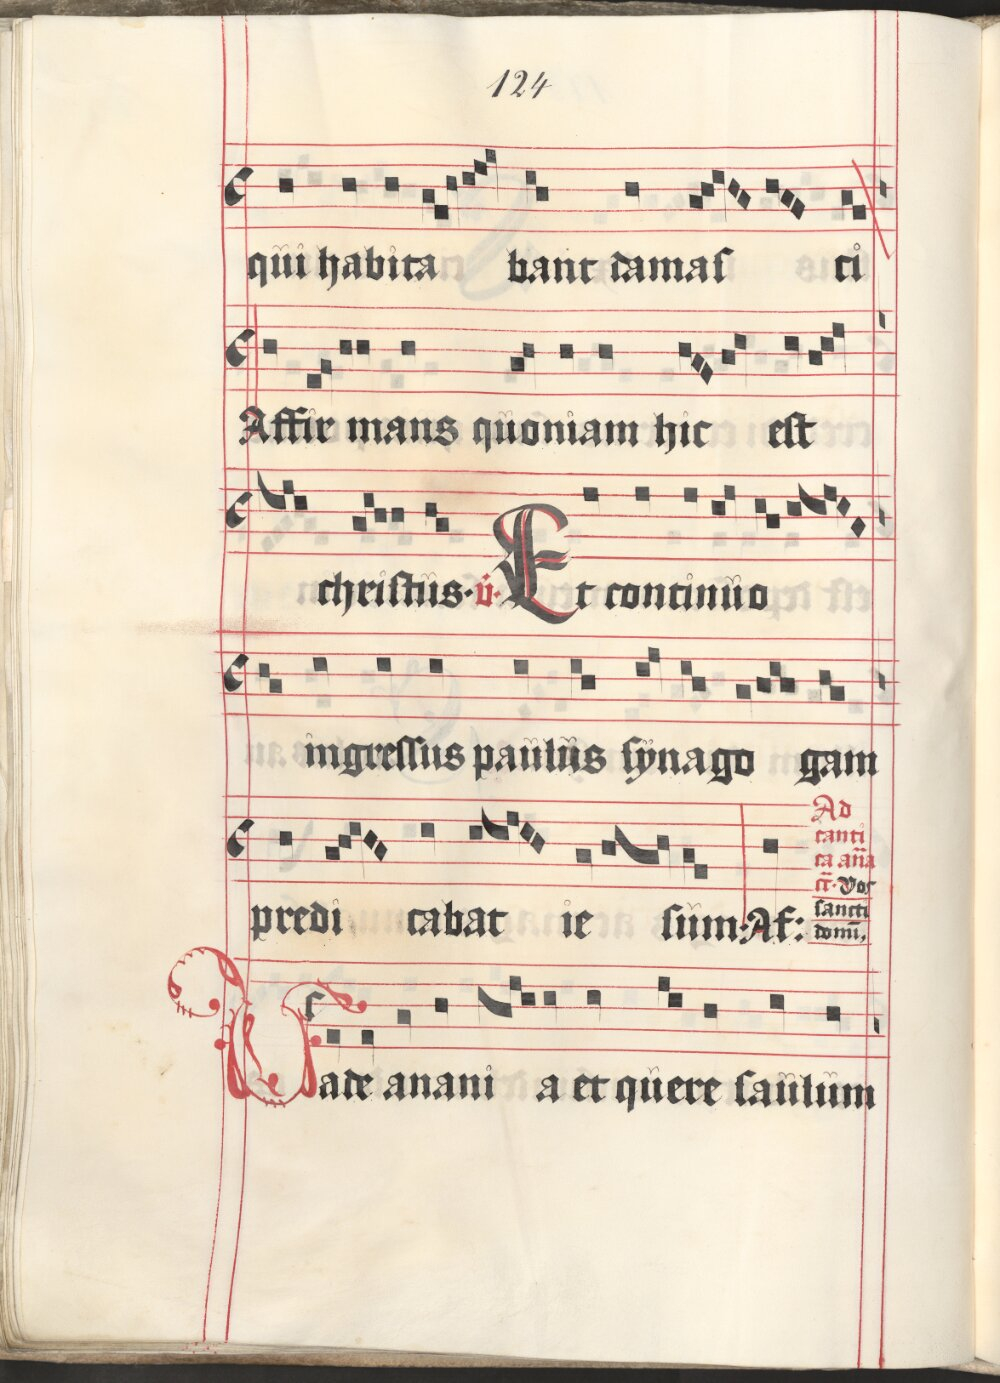 124
qui habita bant damas ci
Affir mans quoniam hic est
christus · v̇ · Et continuo
ingressus paulus synago gam
predi cabat ie sum: Af:
Ad
canti
ca an̄a
cr̄. Vos
sancti
domī,
Vade anani a et quere saulum